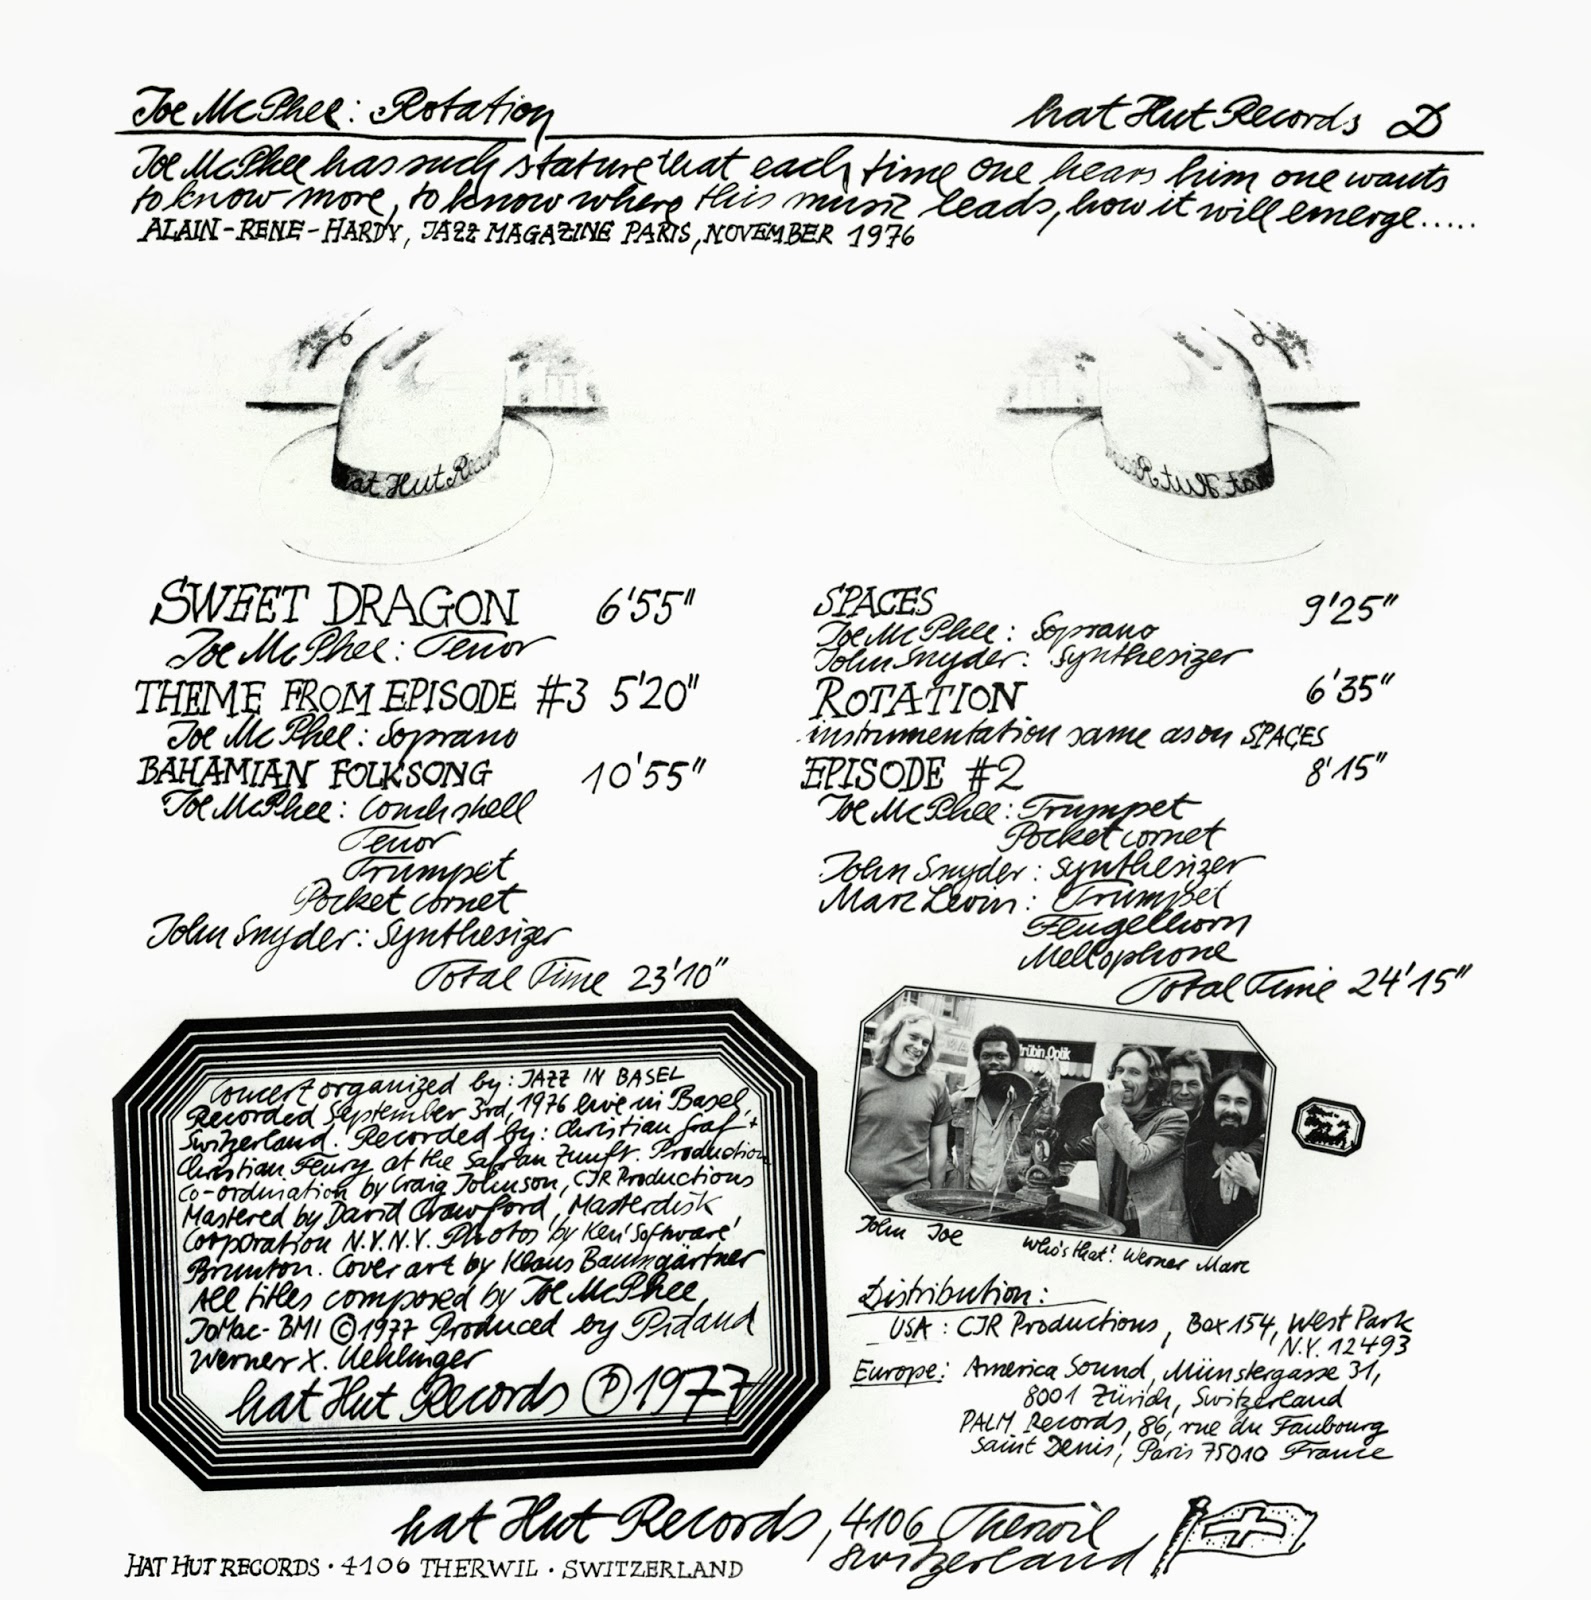 Joe McPhee: Rotation
hat Hut Records D
Joe McPhee has such stature that each time one hears him one wants
to know more, to know where this music leads, how it will emerge.....
ALAIN-RENE-HARDY, JAZZ MAGAZINE PARIS, NOVEMBER 1976
at Hut Recor
SWEET DRAGON 6'55"
Joe McPhee: Tenor
THEME FROM EPISODE #3 5'20"
Joe McPhee: Soprano
BAHAMIAN FOLKSONG 10'55"
Joe McPhee: Conch shell
Tenor
Trumpet
Pocket cornet
John Snyder: Synthesizer
Total Time 23'10"
SPACES 9'25"
Joe McPhee: Soprano
John Snyder: Synthesizer
ROTATION 6'35"
instrumentation same as on SPACES
EPISODE #2 8'15"
Joe McPhee: Trumpet
Pocket cornet
John Snyder: Synthesizer
Marc Levin: Trumpet
Flugelhorn
Mellophone
Total Time 24'15"
Concert organized by: JAZZ IN BASEL
Recorded September 3rd, 1976 live in Basel,
Switzerland. Recorded by: Christian Graf +
Christian Feury at the Safran Zunft. Production
Co-ordination by Craig Johnson, CJR Productions
Mastered by David Crawford, Masterdisk
Corporation N.Y.N.Y. Photos by Ken 'Software'
Brunton. Cover art by Klaus Baumgärtner
All titles composed by Joe McPhee,
JoMac-BMI © 1977 Produced by Pidand
Werner X. Uehlinger
hat Hut Records Ⓟ 1977
rübin Optik
John Joe Who's that? Werner Marc
Distribution:
USA: CJR Productions, Box 154, West Park
N.Y. 12493
Europe: America Sound, Münstergasse 31,
8001 Zürich, Switzerland
PALM Records, 86, rue du Faubourg
Saint Denis, Paris 75010 France
hat Hut Records, 4106 Therwil
Switzerland
HAT HUT RECORDS · 4106 THERWIL · SWITZERLAND